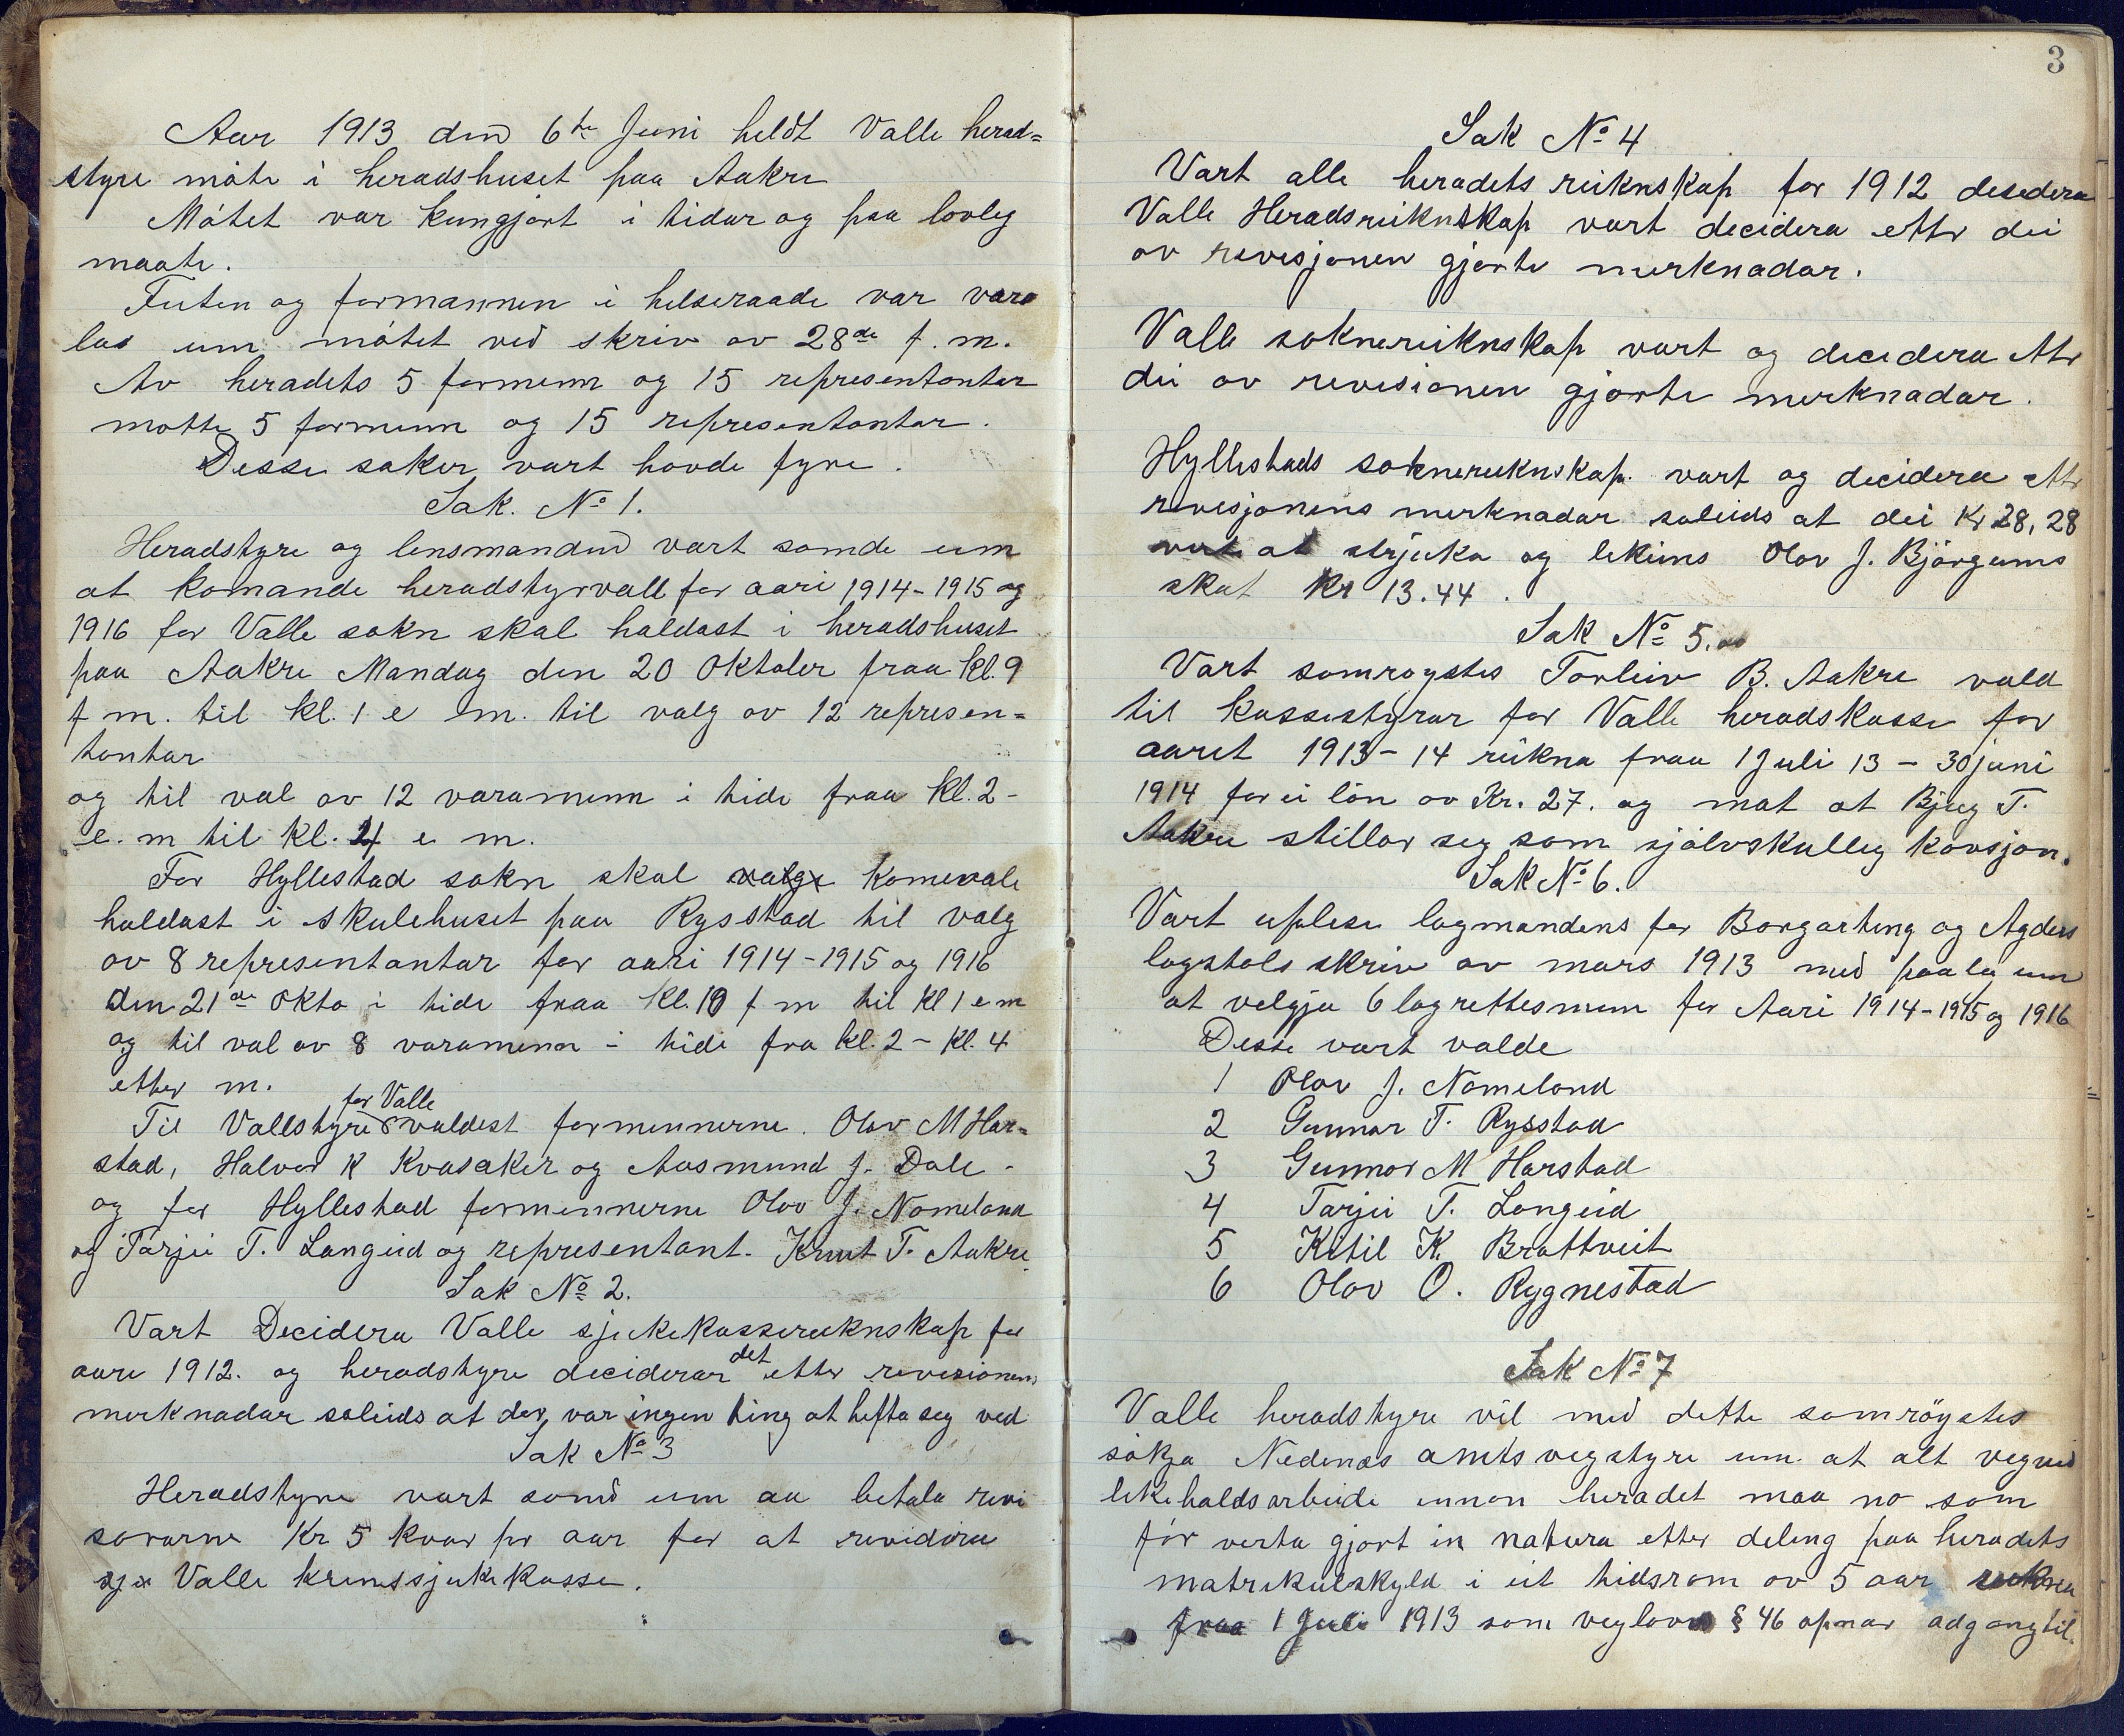 Aar 1913 den 6te Juni heldt Valle herad=
styre møte i heradshuset paa Aakre
Møtet var kungjort i tidar og paa lovleg
maate.
Futen og formannen i helseraade var vara
las um møtet ved skriv av 28de f. m.
Av heradets 5 formenn og 15 representantar
møtte 5 formenn og 15 representantar.
Desse saker vart havde fyre.
Sak. No 1.
Heradstyre og lensmanden vart samde um
at komande heradstyrvall for aari 1914-1915 og
1916 for Valle sokn skal haldast i heradshuset
paa Aakre Mandag den 20 Oktober fraa kl. 9
f m. til kl. 1 e m. til valg av 12 represen=
tantar
og til val av 12 varamenn i tide fraa kl. 2-
e. m til kl. 4 e m.
For Hyllestad sokn skal valge Komevale
haldast i skulehuset paa Rysstad til valg
av 8 representantar for aari 1914-1915 og 1916
den 21de Okto i tide fraa kl. 10 f m til kl 1 e m
og til val av 8 varamenn - tide fra kl. 2 - kl. 4
etter m.
for Valle
Til Vallstyre valdest formennerne. Olav M Har=
stad, Halvor K Kvasaker og Aasmund J. Dale -
og for Hyllestad formennerne Olav J. Nomeland
og Tarjei T. Langeid og representant. Knut T. Aakre.
Sak No 2.
Vart Decidera Valle sjukekasserekneskap for
aare 1912. og heradstyre deciderar det etter revisionens
merknadar soleids at der var ingen ting at hefta seg ved
Sak No 3
Heradstyre vart samd um aa betala revi
sorarne Kr 5 kvar pr aar for at revidera
Valle krinssjukekasse.
3
Sak No 4
Vart alle heradets reiknskap for 1912 desidera
Valle Heradsreiknskap vart decidera ettr dei
av revisjonen gjorte merknadar.
Valle soknereiknskap vart og decidera ettr
dei av revisionen gjorte merknadar.
Hyllestads soknereiknskap. vart og decidera ettr
revisjonens merknadar soleids at dei Kr 28,28
vert at strjuka og lekeins Olav J. Bjørgums
skat kr 13.44.
Sak No 5.
Vart samrøystes Torleiv B. Aakre vald
til kassestyrar for Valle heradskasse for
aaret 1913-14 reikna fraa 1 Juli 13 - 30 juni
1914 for ei løn av Kr. 27. og mot at Bjug T.
Aakre stillar seg som sjølvskulleg kavsjon.
Sak No 6.
Vart uplese lagmandens for Borgarting og Agders
lagstols skriv av mars 1913 med paaleg um
at velgja 6 lagrettesmenn for Aari 1914-1915 og 1916
Desse vart valde
1 Olav J. Nomeland
2 Gunnar T. Rysstad
3 Gunnar M Harstad
4 Tarjei T. Langeid
5 Ketil K. Brottveit
6 Olav O. Rygnestad
Sak No 7
Valle heradstyre vil med dette samrøystes
søkja Nedenæs amts vegstyre um at alt vegved
likehaldsarbeide innan heradet maa no som
før verta gjort in natura etter deling paa heradets
matrikulskyld i eit tidsrom av 5 aar reikna
fraa 1 Juli 1913 som veglovs § 46 opnar adgang til.